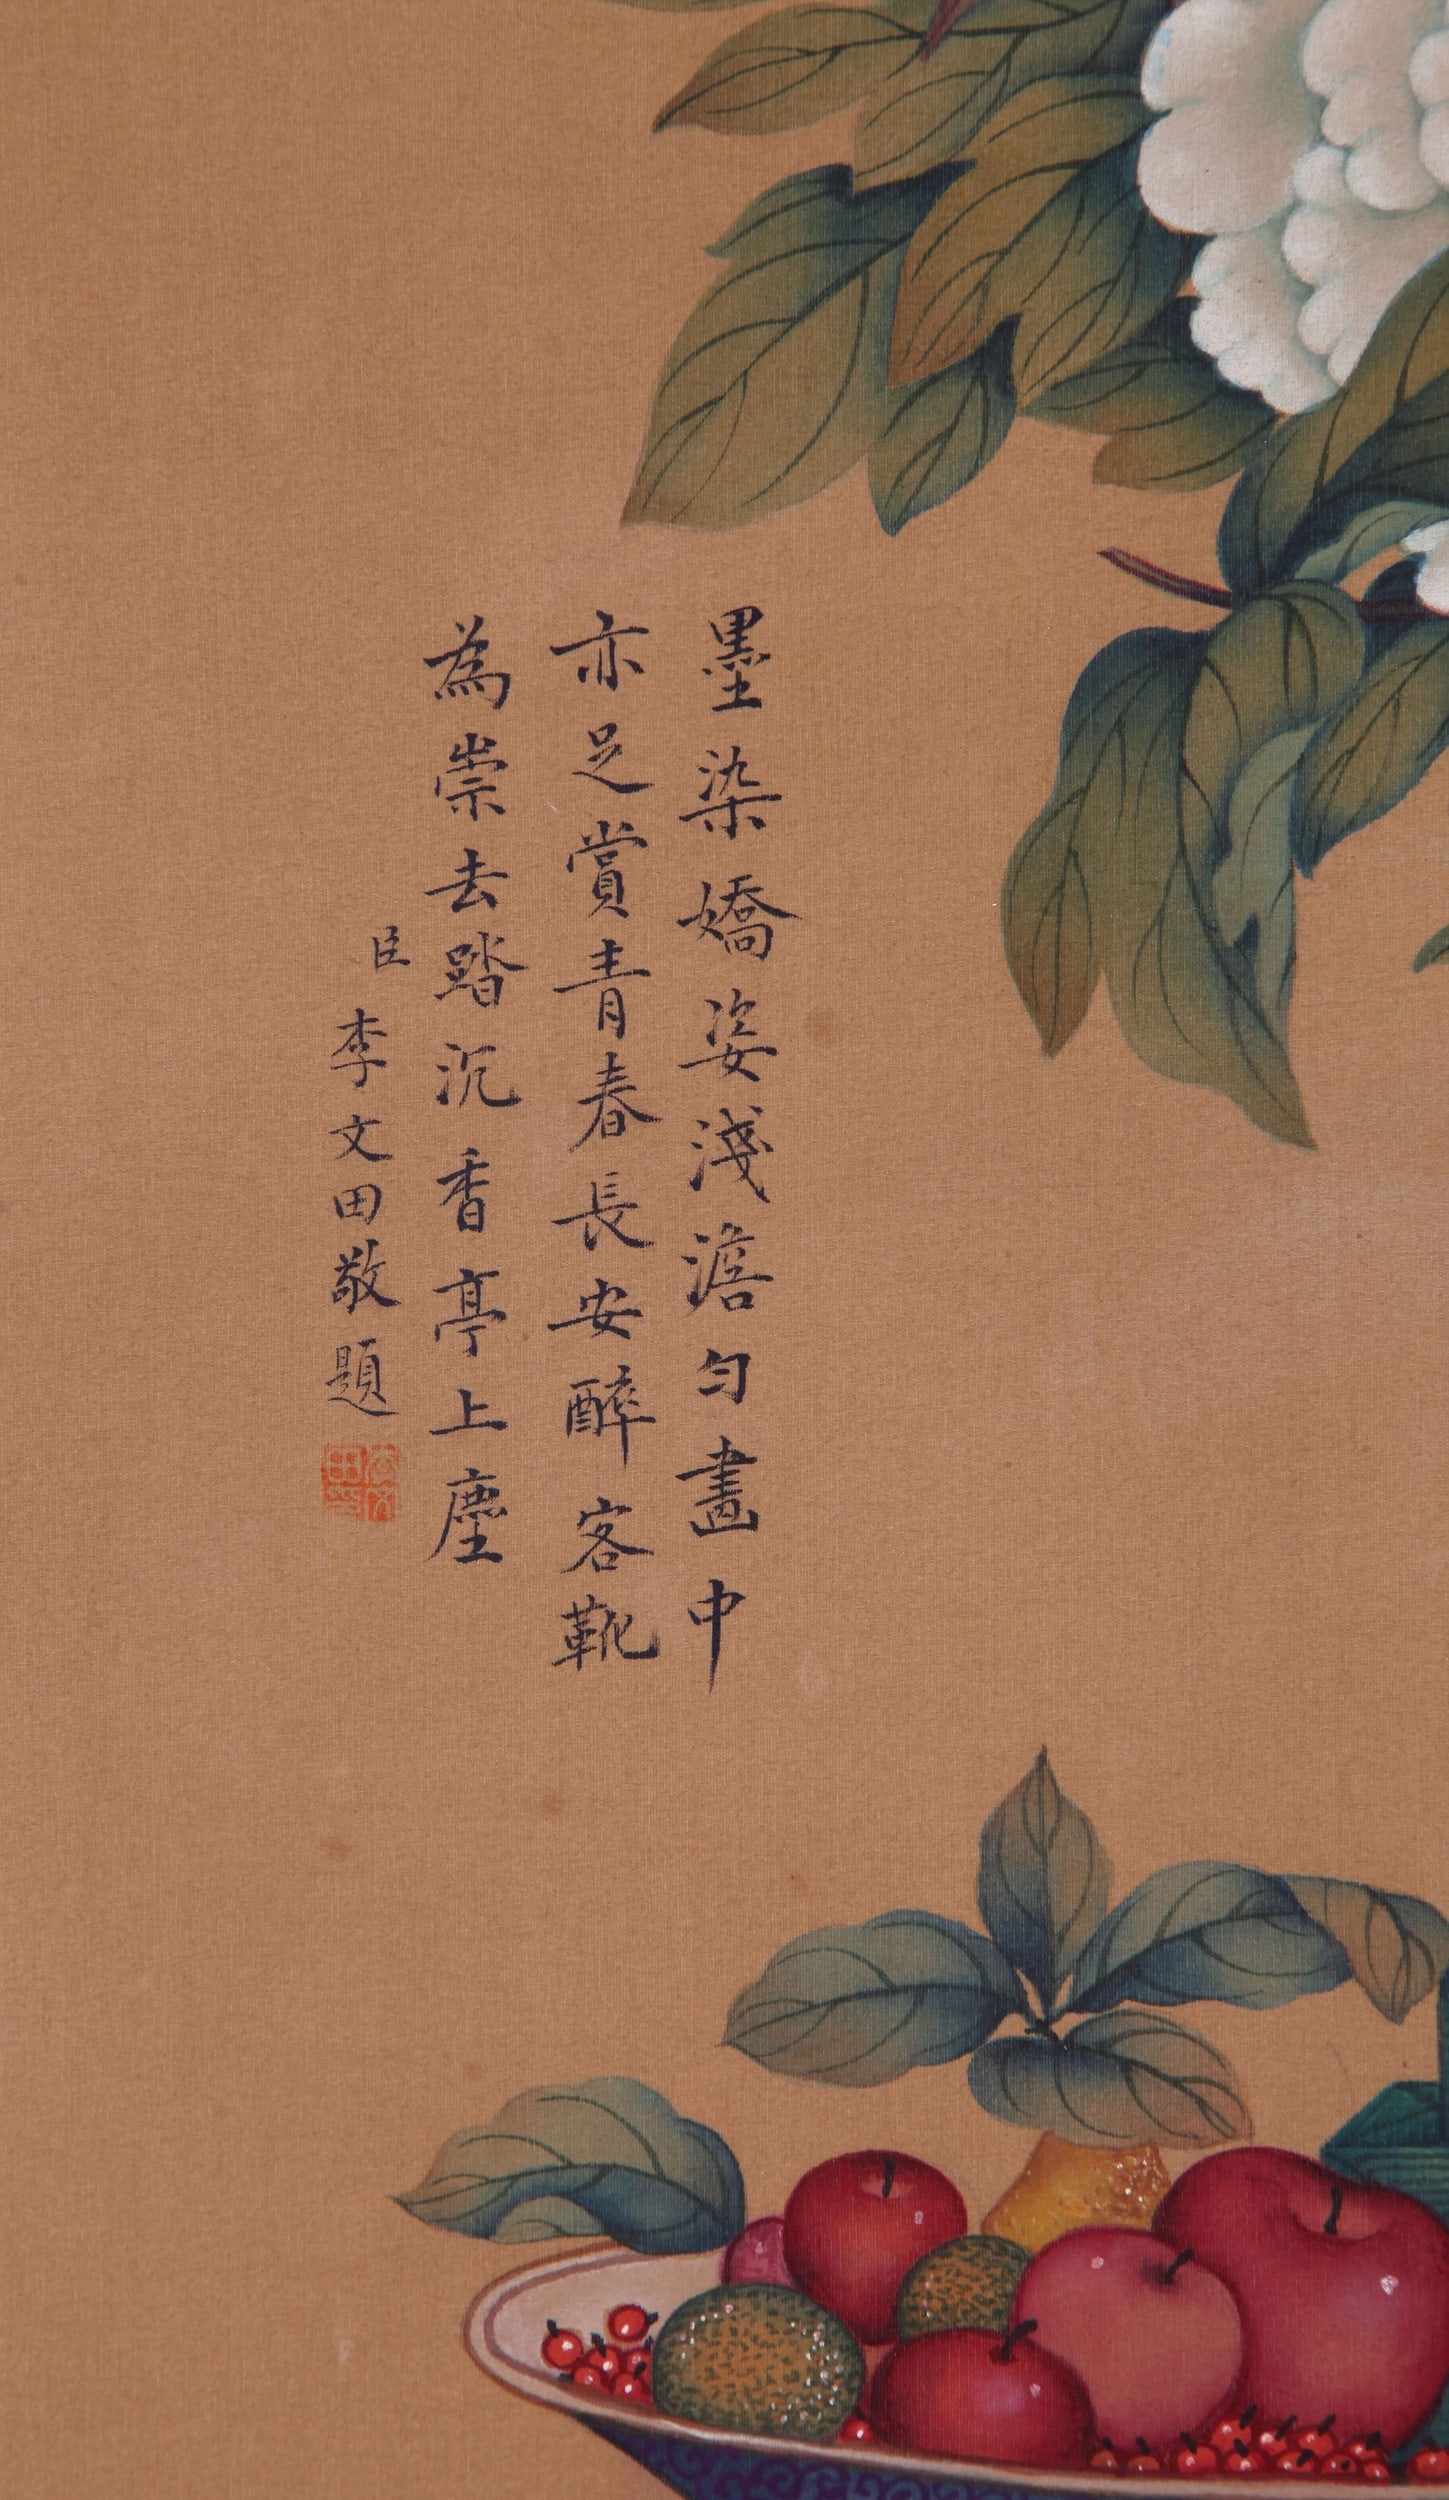 墨染嬌姿淺澹勻畫中
亦足賞青春長安醉客靴
為祟去踏沉香亭上塵
臣李文田敬題